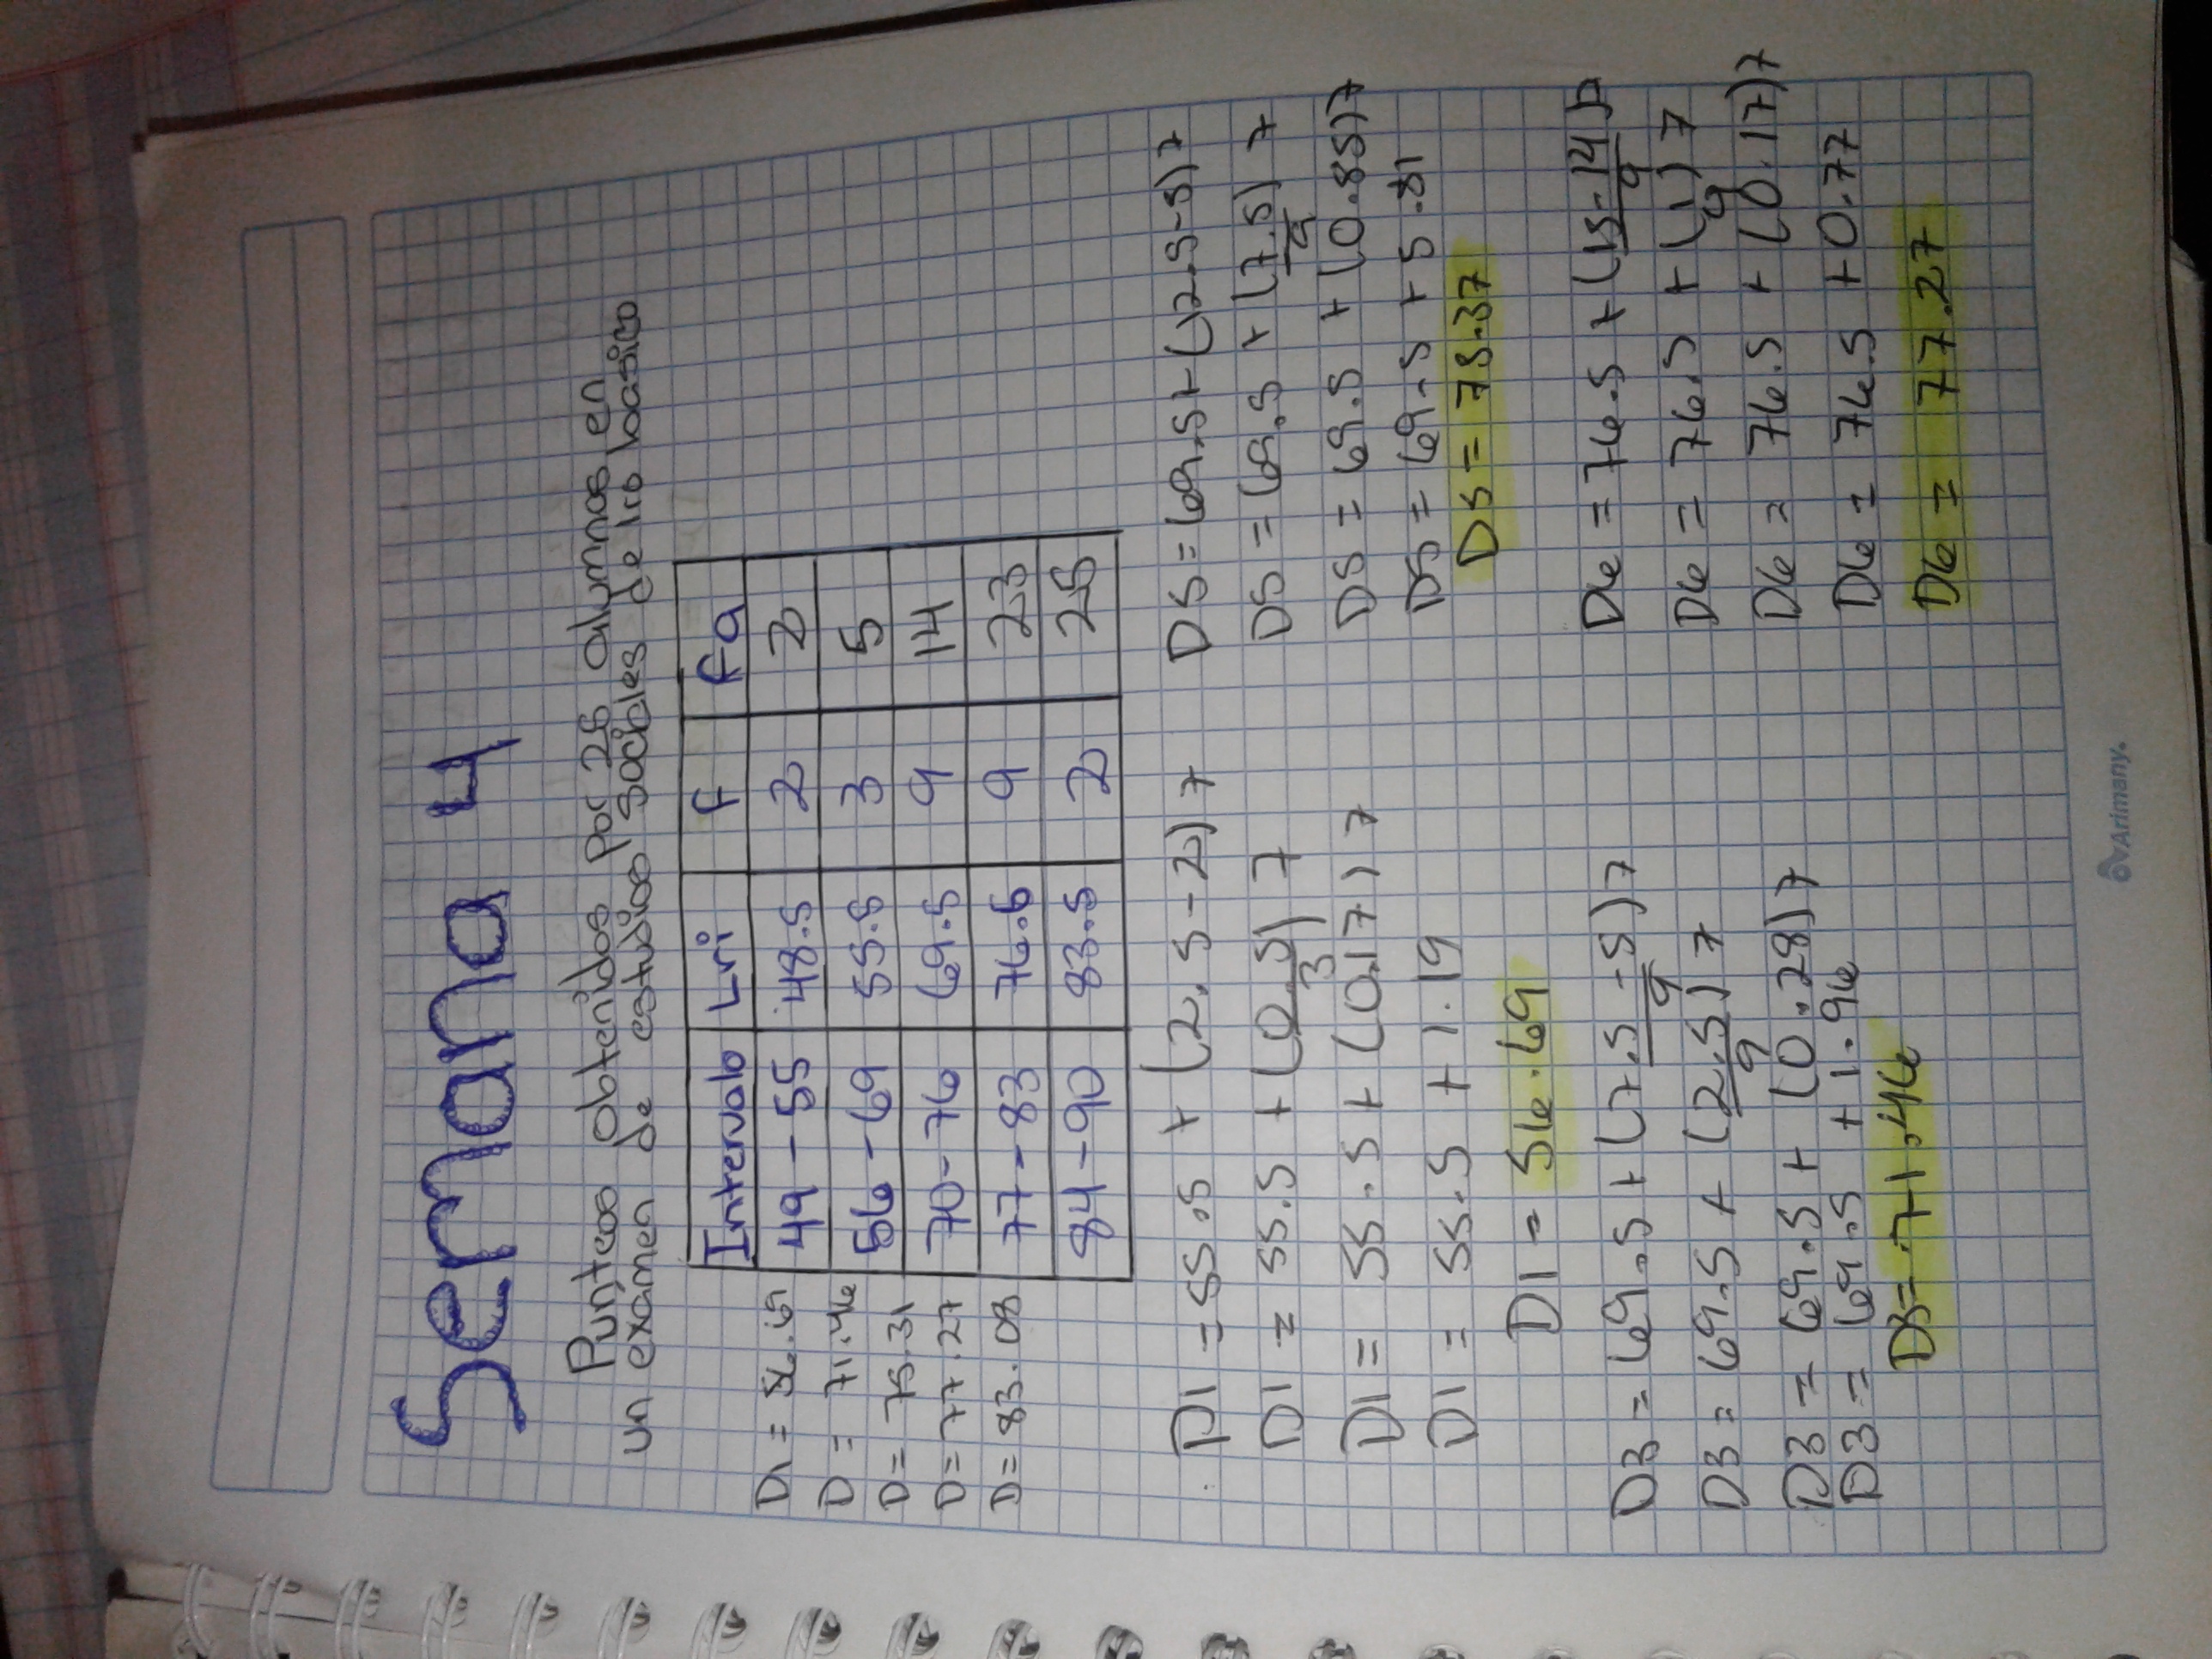 Semana 4
Punteos obtenidos por 25 alumnos en
un examen de estudios sociales de 1ro basico
Intervalo Lri F Fa
49 - 55 48.5 2 2
56 - 69 55.5 3 5
70 - 76 69.5 9 14
77 - 83 76.5 9 23
84 - 90 83.5 2 25
D1 = 56.69
D = 71.46
D = 75.31
D = 77.27
D = 83.08
D1 = 55.5 + (2.5-2)7
D1 = 55.5 + (0.5)7
3
D1 = 55.5 + (0.17)7
D1 = 55.5 + 1.19
D1 = 56.69
D5 = 69.5 + (12.5-5)7
D5 = 69.5 + (7.5)7
9
D5 = 69.5 + (0.85)7
D5 = 69.5 + 5.81
D5 = 75.37
D3 = 69.5 + (7.5-5)7
9
D3 = 69.5 + (2.5)7
9
D3 = 69.5 + (0.28)7
D3 = 69.5 + 1.96
D3 = 71.46
D6 = 76.5 + (15-14)7
9
D6 = 76.5 + (1)7
9
D6 = 76.5 + (0.17)7
D6 = 76.5 + 0.77
D6 = 77.27
Arimany.